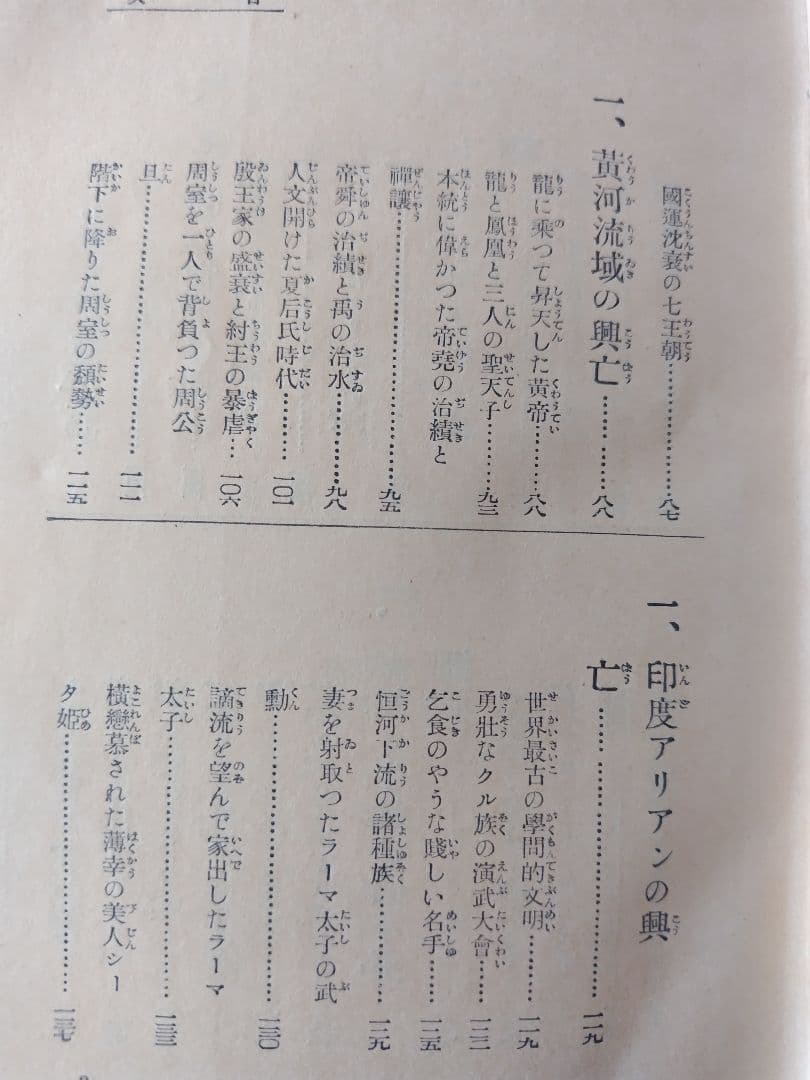 國運沈衰の七王朝………………八七
一、黃河流域の興亡………………八八
龍に乘つて昇天した黃帝………八八
龍と鳳凰と三人の聖天子………九三
本統に偉かつた帝堯の治績と
禪讓………………………………九五
帝舜の治績と禹の治水…………九八
人文開けた夏后氏時代…………一〇一
殷王家の盛衰と紂王の暴虐…一〇六
周室を一人で背負つた周公
旦…………………………………一一一
階下に降りた周室の頽勢……一一五
一、印度アリアンの興
亡…………………………………一一九
世界最古の學問的文明…………一一九
勇壯なクル族の演武大會………一二二
乞食のやうな賤しい名手………一二五
恒河下流の諸種族………………一二九
妻を射取つたラーマ太子の武
勳…………………………………一三〇
謫流を望んで家出したラーマ
太子………………………………一三三
橫戀慕された薄幸の美人シー
タ姬………………………………一三七